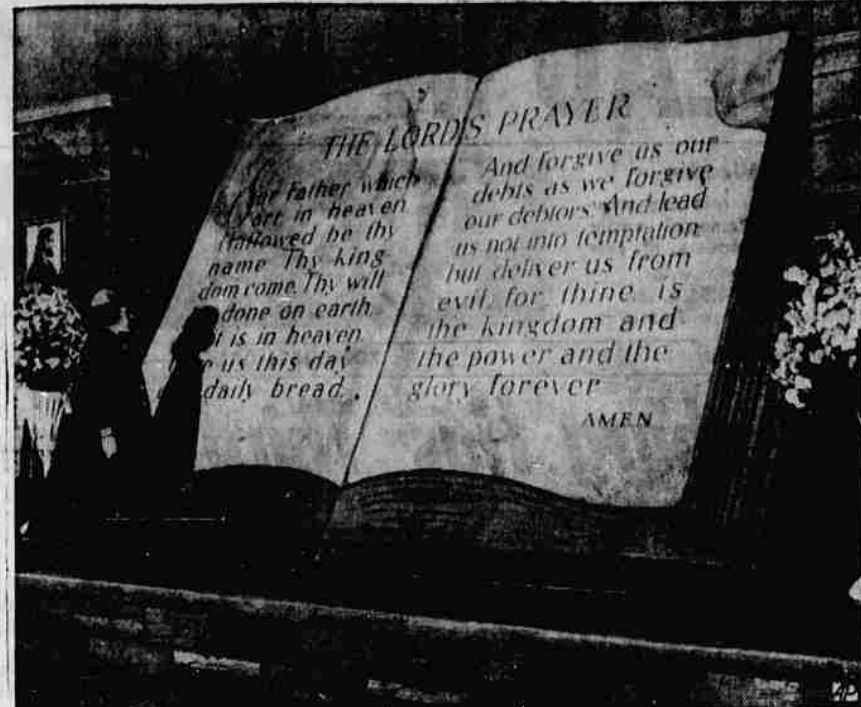 THE LORD'S PRAYER
Our father which
art in heaven
Hallowed be thy
name Thy king
dom come. Thy will
done on earth
it is in heaven
us this day
daily bread.
And forgive us our
debts as we forgive
our debtors And lead
us not into temptation
but deliver us from
evil, for thine is
the kingdom and
the power and the
glory forever
AMEN